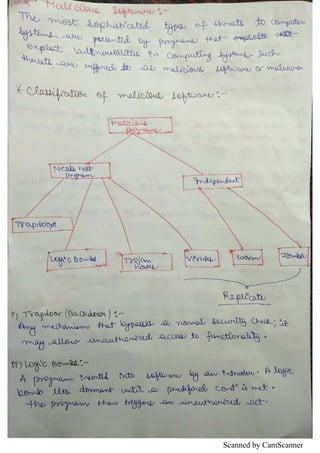 * Malicious Software :-
The most sophisticated types of threats to computer
systems are presented by programs that exploits that
exploit vulnerabilities in computing systems. Such
threats are reffered to as malicious software or malware
* Classification of malicious software :-
Malicious
programs
Needs host
program
Independent
Trapdoor
Logic Bombs
Trojan
horses
Viruses
Worm
Zombie
Replicate
i) Trapdoor (Backdoor) :-
Any mechanism that bypasses a normal security check; it
may allow unauthorized access to functionality.
ii) Logic Bombs:-
A program inserted into software by an intruder. A logic
bomb lies dormant until a predefined condⁿ is met.
the program then triggers an unauthorized act.
Scanned by CamScanner